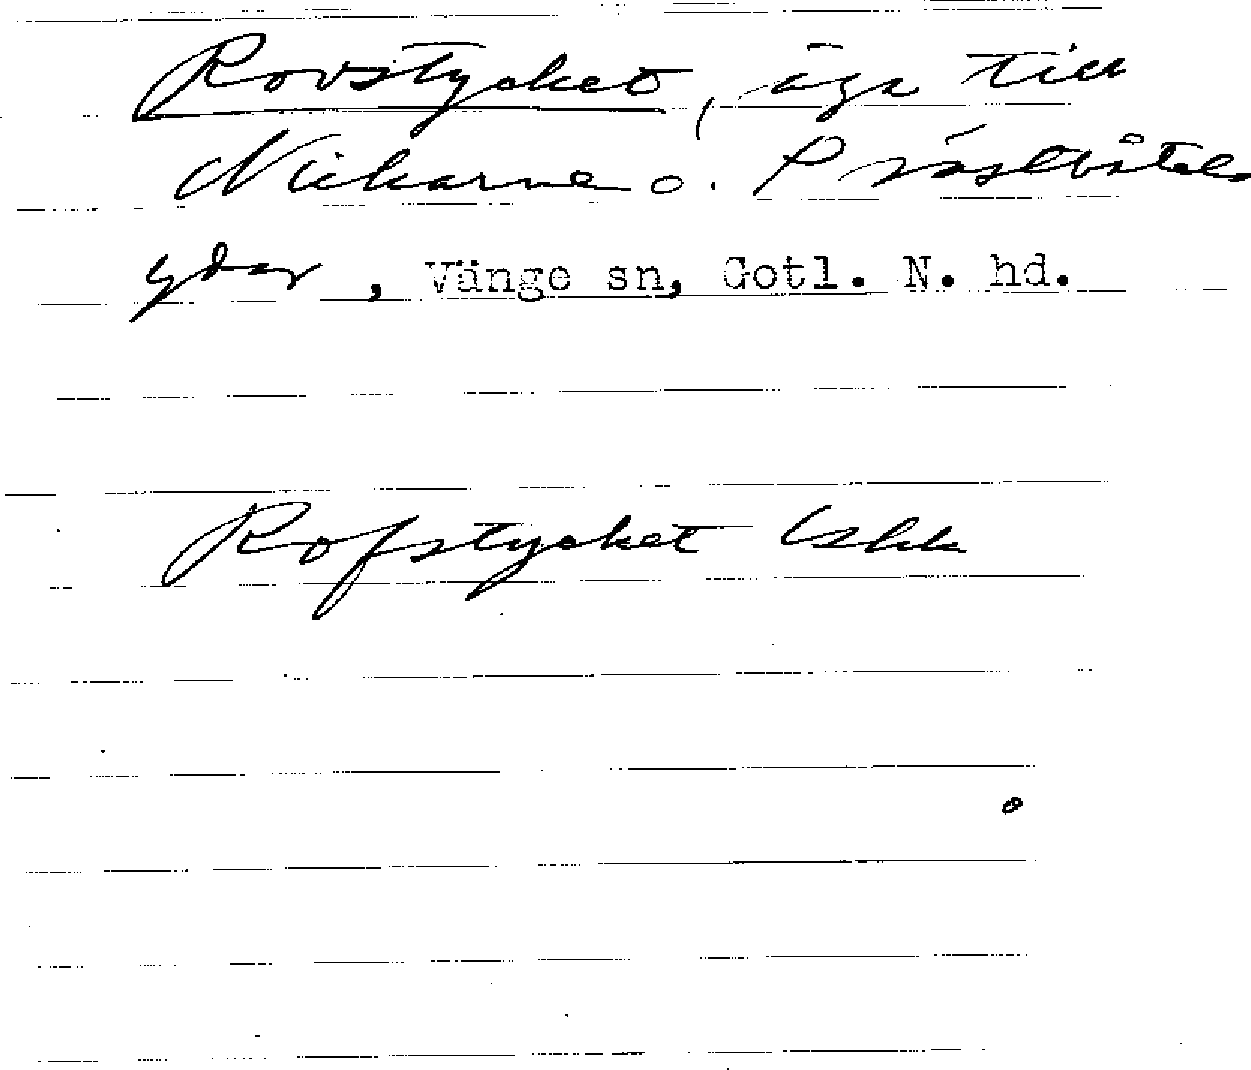 Rovstycket, äga till
Nickarve o. Prästbåtels
ydar, Vänge sn, Gotl. N. hd.
Rofstycket Lskk